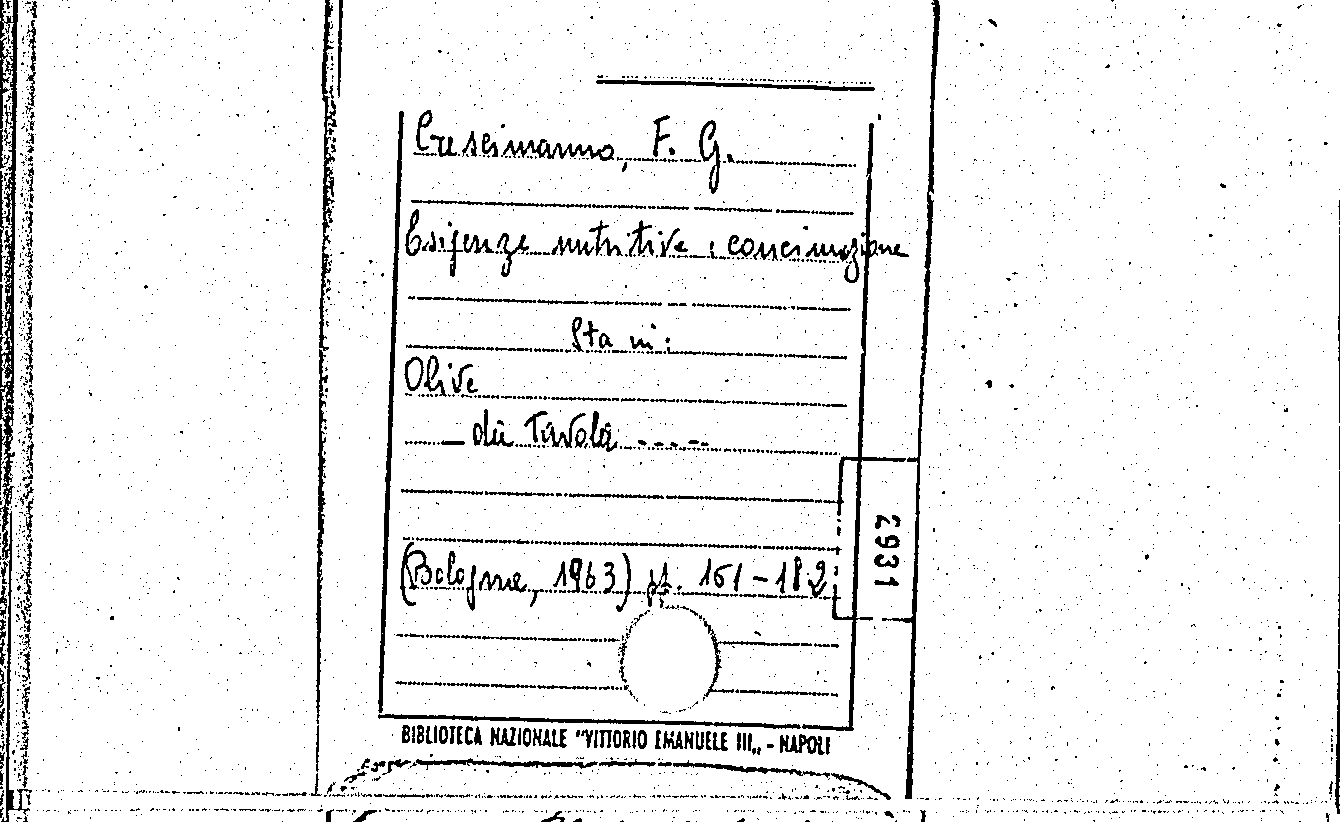 Crescimanno, F. G.
Esigenze nutritive e concimazione
Sta in:
Olive
— da Tavola -----
(Bologna, 1963) pp. 161-182
2931
BIBLIOTECA NAZIONALE "VITTORIO EMANUELE III„ - NAPOLI